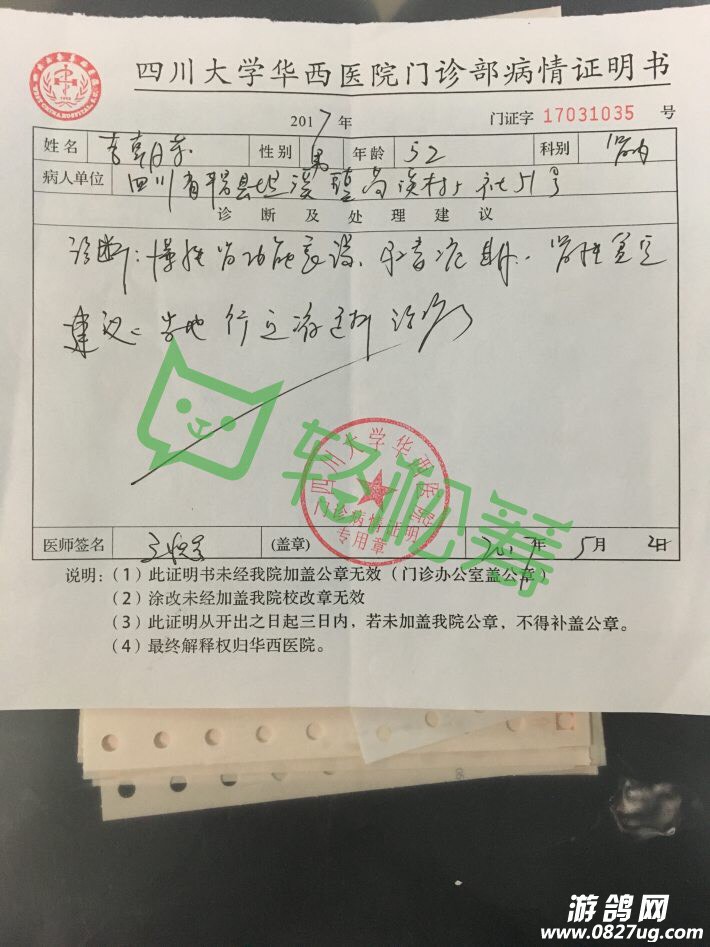 四川大学华西医院门诊部病情证明书
2017年 门证字 17031035 号
姓名 李朝东 性别 男 年龄 52 科别 肾内
病人单位 四川省平昌县坦溪镇 村 社51号
诊断及处理建议
诊断: 慢性肾功能衰竭、尿毒症期、肾性贫血
建议: 当地行血液透析治疗
轻松筹
四川大学华西医院
门诊病情证明
专用章
医师签名 (盖章) 2017年5月2日
说明:(1)此证明书未经我院加盖公章无效(门诊办公室盖公章)
(2)涂改未经加盖我院校改章无效
(3)此证明从开出之日起三日内,若未加盖我院公章,不得补盖公章。
(4)最终解释权归华西医院。
游鸽网
www.0827ug.com